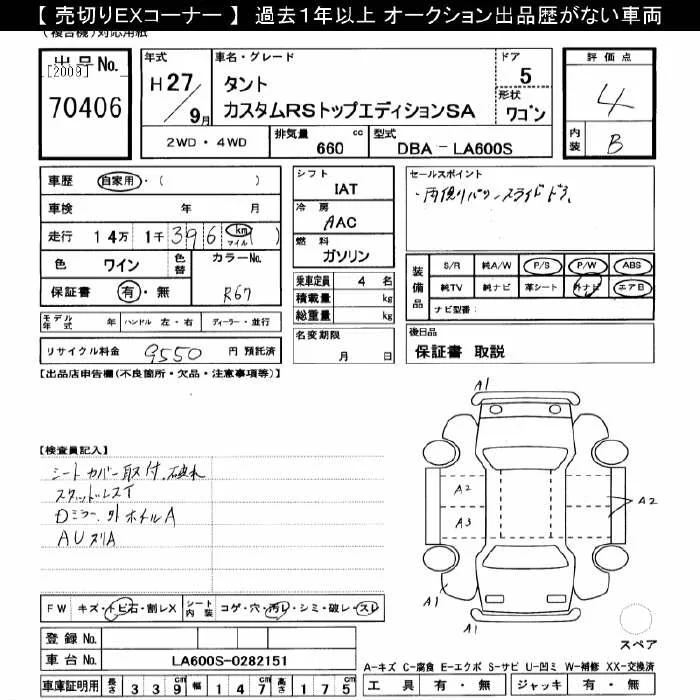 【 売切りEXコーナー 】 過去1年以上 オークション出品歴がない車両
(複合機)対応用紙
出品No.
[2009]
70406
年式
H27/9月
車名・グレード
タント
カスタムRSトップエディションSA
ドア
5
形状
ワゴン
2WD・4WD
排気量
660 cc
型式
DBA－LA600S
評価点
4
内装
B
車歴 自家用・( )
車検 年 月
走行 14万 1千396 km マイル ( )
色 ワイン
色替
カラーNo.
R67
保証書 有・無
モデル年式 年 ハンドル 左・右 ディーラー・並行
リサイクル料金 9550 円 預託済
シフト
IAT
冷房
AAC
燃料
ガソリン
乗車定員 4 名
積載量 kg
総重量 kg
名変期限
月 日
セールスポイント
・両側パワースライドドア
装備品
S/R 純A/W P/S P/W ABS
純TV 純ナビ 革シート 外ナビ エアB
ナビ型番:
後日品
保証書 取説
【出品店申告欄(不良箇所・欠品・注意事項等)】
【検査員記入】
シートカバー取付.破れ
スタッドレスT
Dミラー.外ホイルA
AUスリA
A1
A2
A3
A2
A1
A1
スペア
FW キズ・トビ石・割レX
シート内装 コゲ・穴・汚レ・シミ・破レ・スレ
登録No.
車台No. LA600S-0282151
車庫証明用 長さ 339cm 幅 147cm 高さ 175cm
A-キズ C-腐食 E-エクボ S-サビ U-凹ミ W-補修 XX-交換済
工具 有・無 ジャッキ 有・無